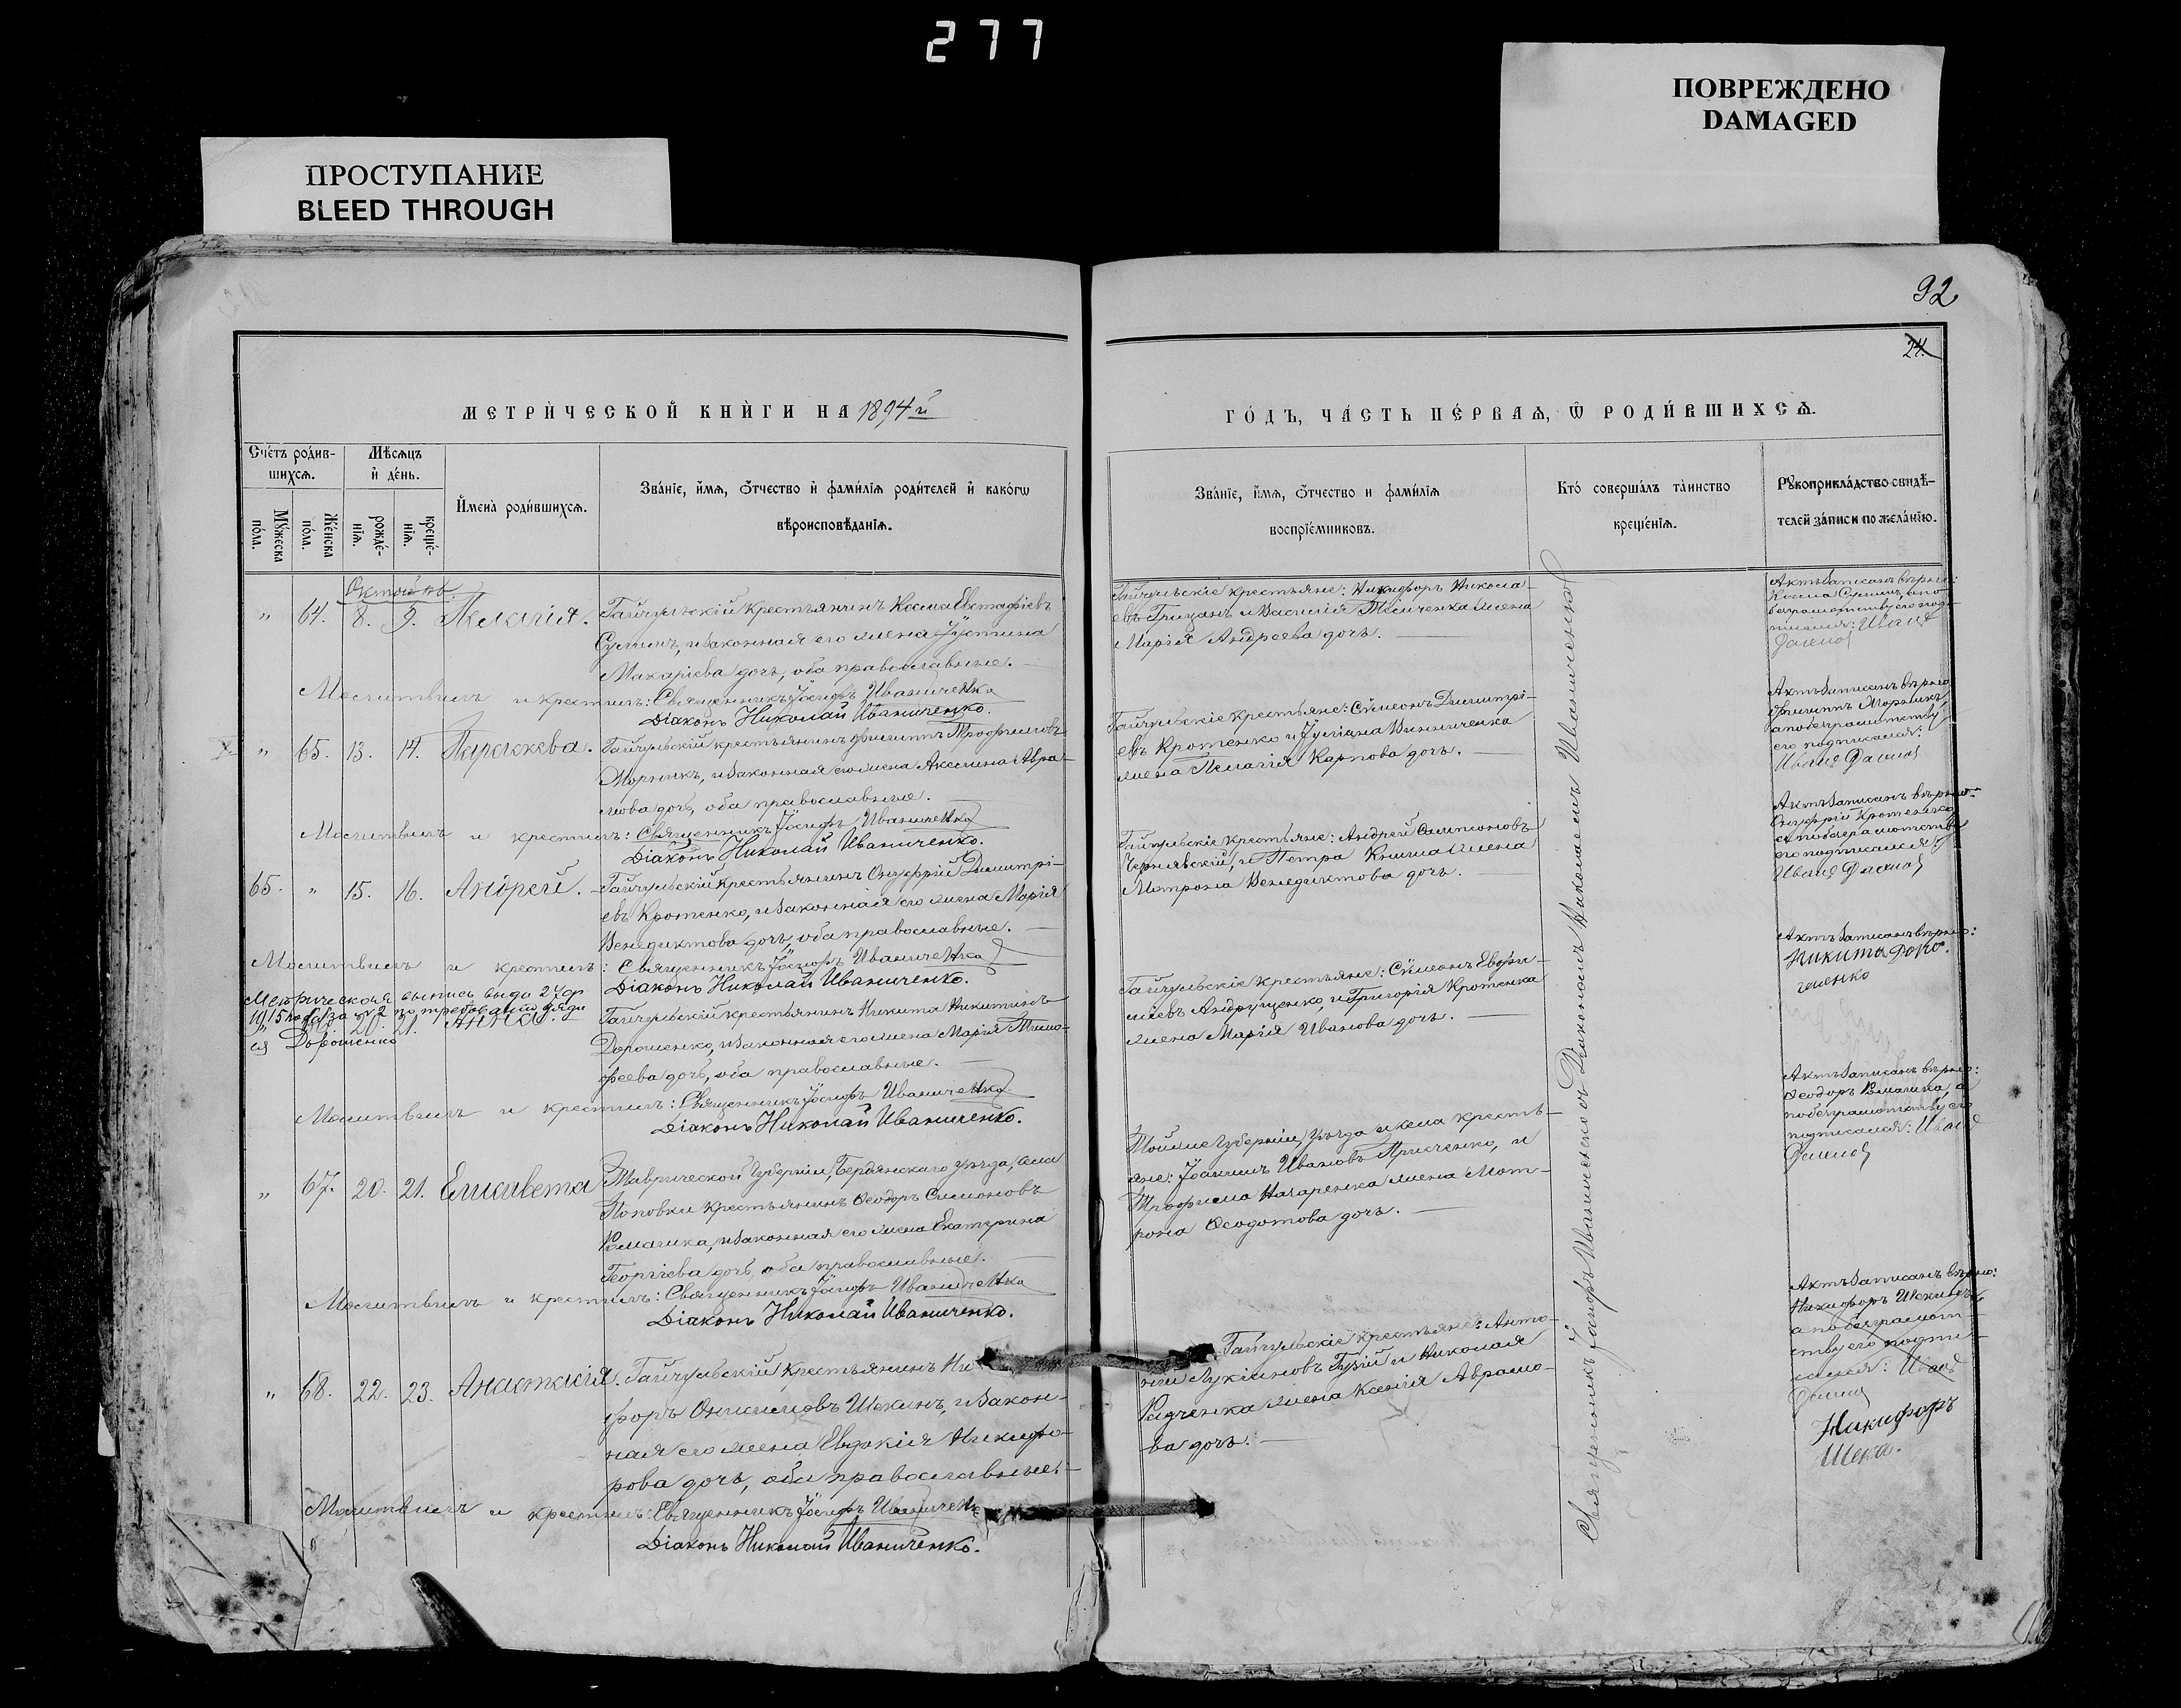 277
ПОВРЕЖДЕНО
DAMAGED
ПРОСТУПАНИЕ
BLEED THROUGH
92
24.
МЕТРИ́ЧЕСКОЙ КНИ́ГИ НА 1894й
ГО́ДЪ, ЧА́СТЬ ПЕ́РВАѦ, Ѿ РОДИ́ВШИХСѦ.
Сче́тъ роди́в-
шихсѧ.
Мѣ́сѧцъ
и де́нь.
Мꙋ́жеска
по́ла.
Же́нска
по́ла.
рожде́-
нїѧ.
креще́-
нїѧ.
Имена̀ роди́вшихсѧ.
Зва́нїе, и́мѧ, о́тчество и фами́лїѧ роди́телей и како́гѡ
вѣроисповѣ́данїѧ.
Зва́нїе, и́мѧ, о́тчество и фами́лїѧ
воспрїе́мниковъ.
Кто́ соверша́лъ та́инство
креще́нїѧ.
Рꙋкоприкла́дство свидѣ́-
телей за́писи по жела́нїю.
Октоябъ
" 64. 8. 9. Пелагія.
Гайчульскій крестьянинъ Косма Евстафіевъ
и законная его жена Іустина
Макаріева дочь, оба православные.
Молитвилъ и крестилъ: Священникъ Іосифъ Иваниченко
Діаконъ Николай Иваниченко.
Гайчульскіе крестьяне: Никифоръ Никола-
евъ Грицанъ и Василія жена
Марія Андреева дочь.
Актъ записанъ вѣрно:
Косма
" 65. 13. 14. Параскева.
Гайчульскій крестьянинъ Филиппъ Трофимовъ
и законная его жена Акилина Авра-
мова дочь, оба православные.
Молитвилъ и крестилъ: Священникъ Іосифъ Иваниченко
Діаконъ Николай Иваниченко.
Гайчульскіе крестьяне: Сѵмеонъ Димитрі-
евъ Кротенко и Винниченка
жена Пелагія Карпова дочь.
Актъ записанъ вѣрно
Филиппъ
а по безграмотству
его подписался:
65. " 15. 16. Андрей.
Гайчульскій крестьянинъ Онуфрій Димитрі-
евъ Кротенко, и законная его жена Марія
Венедиктова дочь, оба православные.
Молитвилъ и крестилъ: Священникъ Іосифъ Иваниченко
Діаконъ Николай Иваниченко.
Гайчульскіе крестьяне: Андрей Сампсоновъ
Чернявскій, и Петра Книша жена
Матрона Венедиктова дочь.
Актъ записанъ вѣрно
Онуфрій Кротенко
его подписался:
Метрическая выпись выдана
Дорошенко
20. 21. Анна.
Гайчульскій крестьянинъ Никита Никитинъ
Дорошенко, и законная его жена Марія Тимо-
феева дочь, оба православные.
Молитвилъ и крестилъ: Священникъ Іосифъ Иваниченко
Діаконъ Николай Иваниченко.
Гайчульскіе крестьяне: Сѵмеонъ Евфи-
міевъ Андрущенко, и Григорія Кротенка
жена Марія Иванова дочь.
Актъ записанъ вѣрно:
Никита Доро
шенко
" 67. 20. 21. Елисавета
Таврической Губерніи, Бердянскаго уѣзда, села
Поповки крестьянинъ Ѳеодоръ Симоновъ
и законная его жена Екатерина
Георгіева дочь, оба православные.
Молитвилъ и крестилъ: Священникъ Іосифъ Иваниченко
Діаконъ Николай Иваниченко.
Той же Губерніи, уѣзда и села кресть-
яне: Іоакимъ Ивановъ и
Трофима Назаренка жена Мат-
рона Ѳеодотова дочь.
Актъ записанъ вѣрно:
Ѳеодоръ а
по безграмотству его
подписался:
" 68. 22. 23. Анастасія.
Гайчульскій крестьянинъ Ни-
форъ Онисимовъ Шекинъ, и закон-
ная его жена Евдокія Никифо-
рова дочь, оба православные.
Молитвилъ и крестилъ: Священникъ Іосифъ Иваниченк
Діаконъ Николай Иваниченко.
Гайчульскіе крестьяне: Анто-
ній Лукіановъ Гузій и Николая
Радченка жена Ксенія Аврамо-
ва дочь.
Актъ записанъ вѣрно:
Никифоръ
а по безграмот
ству его подпи
сался:
Никифоръ
Шека.
Священникъ Іосифъ Иваниченко съ Діакономъ Николаемъ Иваниченко